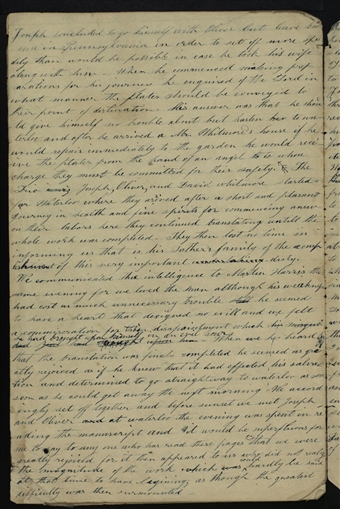 Joseph concluded to go himself after Oliver but leave Em
ma in Pennsylvania in order to set off more spe
dily than would be possible in case he took his wife
along with him. When he commenced making prep
arations for his journey he enquired of the Lord in
what manner the plates should be conveyed to
their point of destination. his answer was that he shou
ld give himself no trouble about but hasten to wa
terloo and after he arived a Mr. Whitmore's house if he
would repair immediately to the garden he would rece
ive the plates from the hand of an angel to whose
charge they must be committed for their safety. The
Joseph, Oliver, and David whitmore started
for Waterloo where they arived after a short and pleasant
journey in health and fine spirits for commencing anew
on their labors here they continued translating untill the
whole work was completed. They then lost no time in
informing us that is his Father's family of the comp
of this very important duty.
We communicated the intelligence to Martin Harris the
same evening for we loved the man although his weakness
had cost us much unnecessary trouble he seemed
to have a heart that designed no evil and we felt
a commiseration for the disapointment which
he had brought upon himself in an evil hour
When we he heard
that the translation was finaly completed he seemed as gre
atly rejoiced as if he knew that it had affected his salva
tion and determined to go straightway to waterloo as soon
as soon as he could get away the next morning. We accord
ingly set of together and before sunset we met Joseph
and Oliver and at waterloo the evening was spent in re
ading the manuscript and it would be superfluous for
me to say to any one who has read these pages that we were
greatly rejoiced for it then appeared to us who did not realize
the magnitude of the work which could hardly be said
at that time to have a begining as though the greatest
difficulty was then surmounted